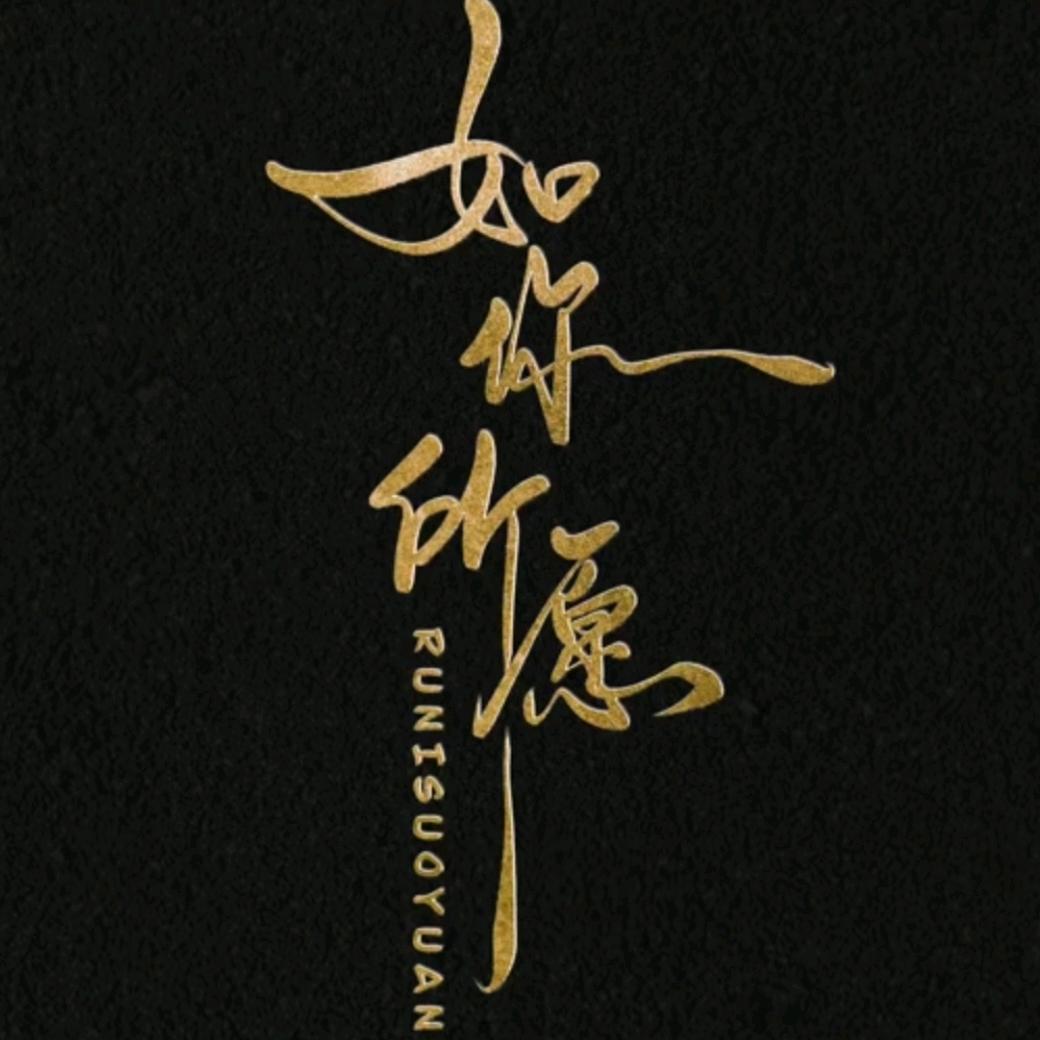 如你所愿
RUNISUOYUAN